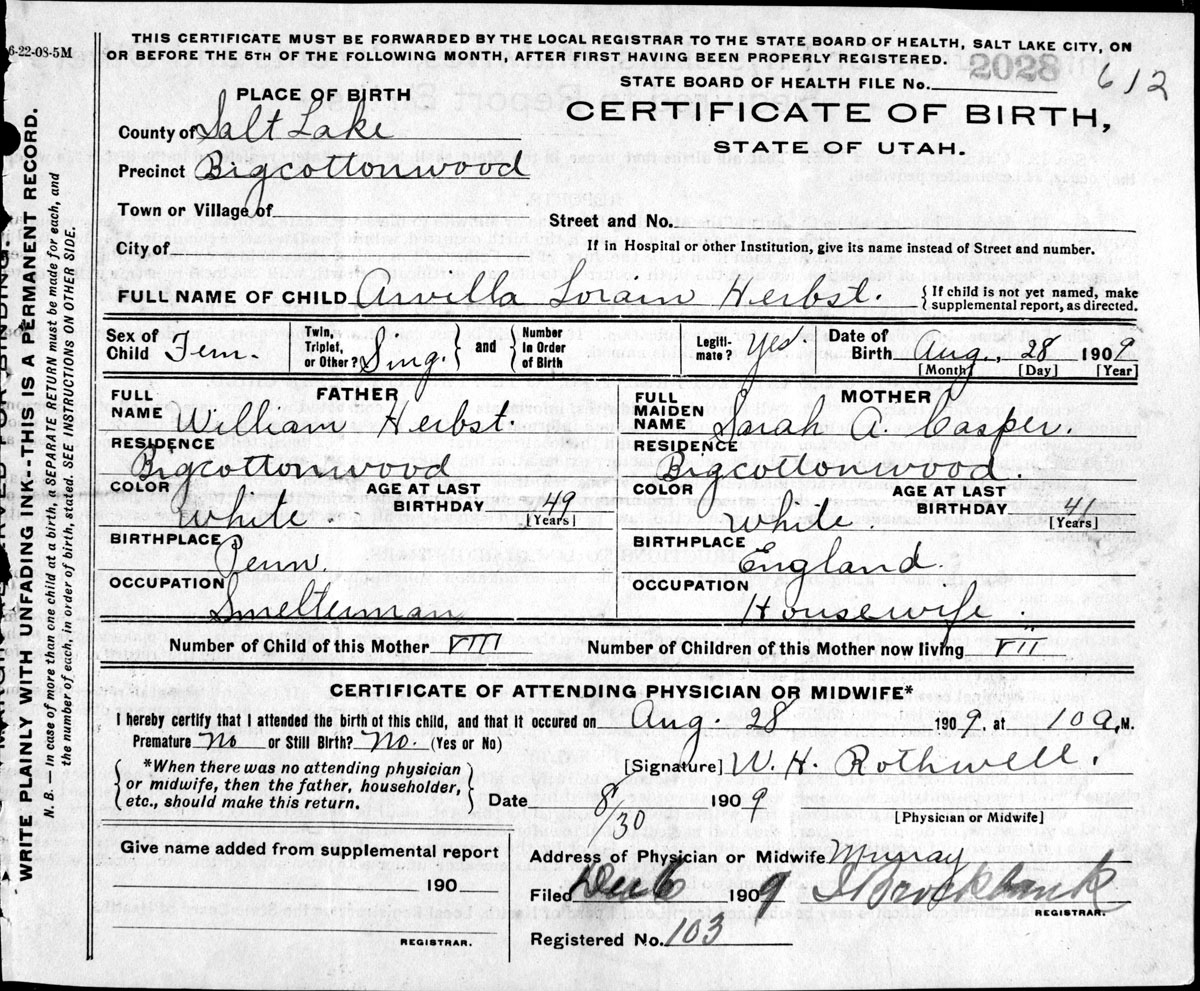 6-22-08-5M
THIS CERTIFICATE MUST BE FORWARDED BY THE LOCAL REGISTRAR TO THE STATE BOARD OF HEALTH, SALT LAKE CITY, ON
OR BEFORE THE 5TH OF THE FOLLOWING MONTH, AFTER FIRST HAVING BEEN PROPERLY REGISTERED.
STATE BOARD OF HEALTH FILE No. 2028 612
PLACE OF BIRTH
CERTIFICATE OF BIRTH,
STATE OF UTAH.
County of Salt Lake
Precinct Bigcottonwood
Town or Village of
Street and No.
City of
If in Hospital or other Institution, give its name instead of Street and number.
FULL NAME OF CHILD Arvilla Lorain Herbst. {If child is not yet named, make
supplemental report, as directed.
Sex of Child Fem. Twin, Triplet, or Other? Sing. and Number in Order of Birth Legiti-mate? Yes. Date of Birth Aug. 28 1909
[Month] [Day] [Year]
FATHER
FULL NAME William Herbst.
RESIDENCE Bigcottonwood
COLOR White. AGE AT LAST BIRTHDAY 49 [Years]
BIRTHPLACE Penn.
OCCUPATION Smelterman
MOTHER
FULL MAIDEN NAME Sarah A. Casper.
RESIDENCE Bigcottonwood.
COLOR White. AGE AT LAST BIRTHDAY 41 [Years]
BIRTHPLACE England.
OCCUPATION Housewife.
Number of Child of this Mother VIII Number of Children of this Mother now living VII
CERTIFICATE OF ATTENDING PHYSICIAN OR MIDWIFE*
I hereby certify that I attended the birth of this child, and that it occured on Aug. 28 1909, at 10 a. M.
Premature No or Still Birth? No. (Yes or No)
*When there was no attending physician
or midwife, then the father, householder,
etc., should make this return.
[Signature] W. H. Rothwell.
Date 8/30 1909
[Physician or Midwife]
Give name added from supplemental report
190
REGISTRAR.
Address of Physician or Midwife Murray
Filed Dec 6 1909
REGISTRAR.
Registered No. 103
WRITE PLAINLY WITH UNFADING INK--THIS IS A PERMANENT RECORD.
N. B.— In case of more than one child at a birth, a SEPARATE RETURN must be made for each, and
the number of each, in order of birth, stated. SEE INSTRUCTIONS ON OTHER SIDE.